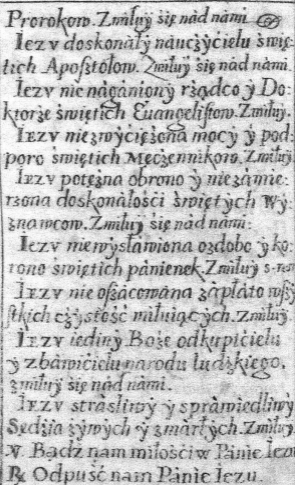 Prorokow. Zmiłuy się nad nami
Iezv doskonały nauczycielu świę-
tich Apostołow. Zmiłuy się nad nami.
Iezv nienaganiony rządco y Do:
ktorze świętich Euangelistow. Zmiłuy.
Iezv niezwyciężona mocy y pod:
poro świętich Męczennikow. Zmiłuy
Iezv potężna obrono y niezmie:
rzona doskonałości świętych wy:
znawcow. Zmiłuy się nad nami:
Iezv niewysławiona ozdobo y ko:
rono świętich panienek. Zmiłuy s. n. n
Iezv nieoszacowana zapłato wszy
stkich czystość miłuiących. Zmiłuy.
Iezv iediny Boże odkupicielu
y zbawicielu narodu ludzkiego.
zmiłuy się nad nami.
Iezv strasliwy y sprawiedliwy
Sędzia żywych y zmarłych. Zmiłuy
V. Bądz nam miłościw Panie Iezu
R. Odpuść nam Panie Iezu.